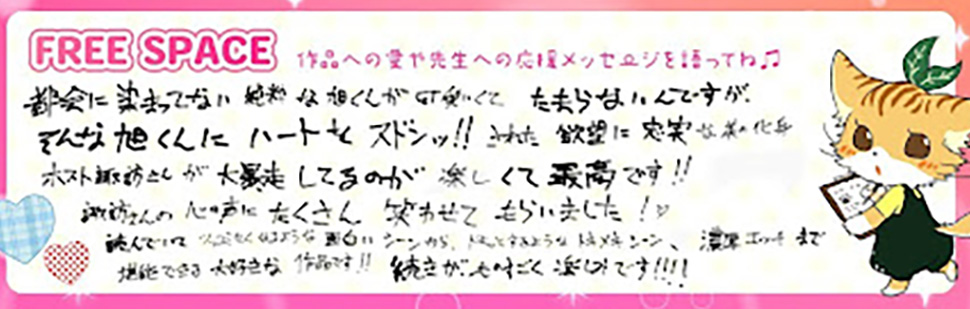 FREE SPACE
作品への愛や先生への応援メッセージを語ってね♫
都会に染まってない純粋な旭くんが可愛くて たまらないんですが、
そんな旭くんに ハートを ズドンッ!! された 欲望に忠実な
ホスト諏訪さんが 大暴走 してるのが 楽しくて 最高です!!
諏訪さんの 心の声に たくさん 笑わせて もらいました!♡
読んでいて ような 面白いシーンから、 ような トキメキシーン、 濃厚エッチ まで
堪能できる 大好きな 作品です!! 続きが ものすごく 楽しみです!!!!